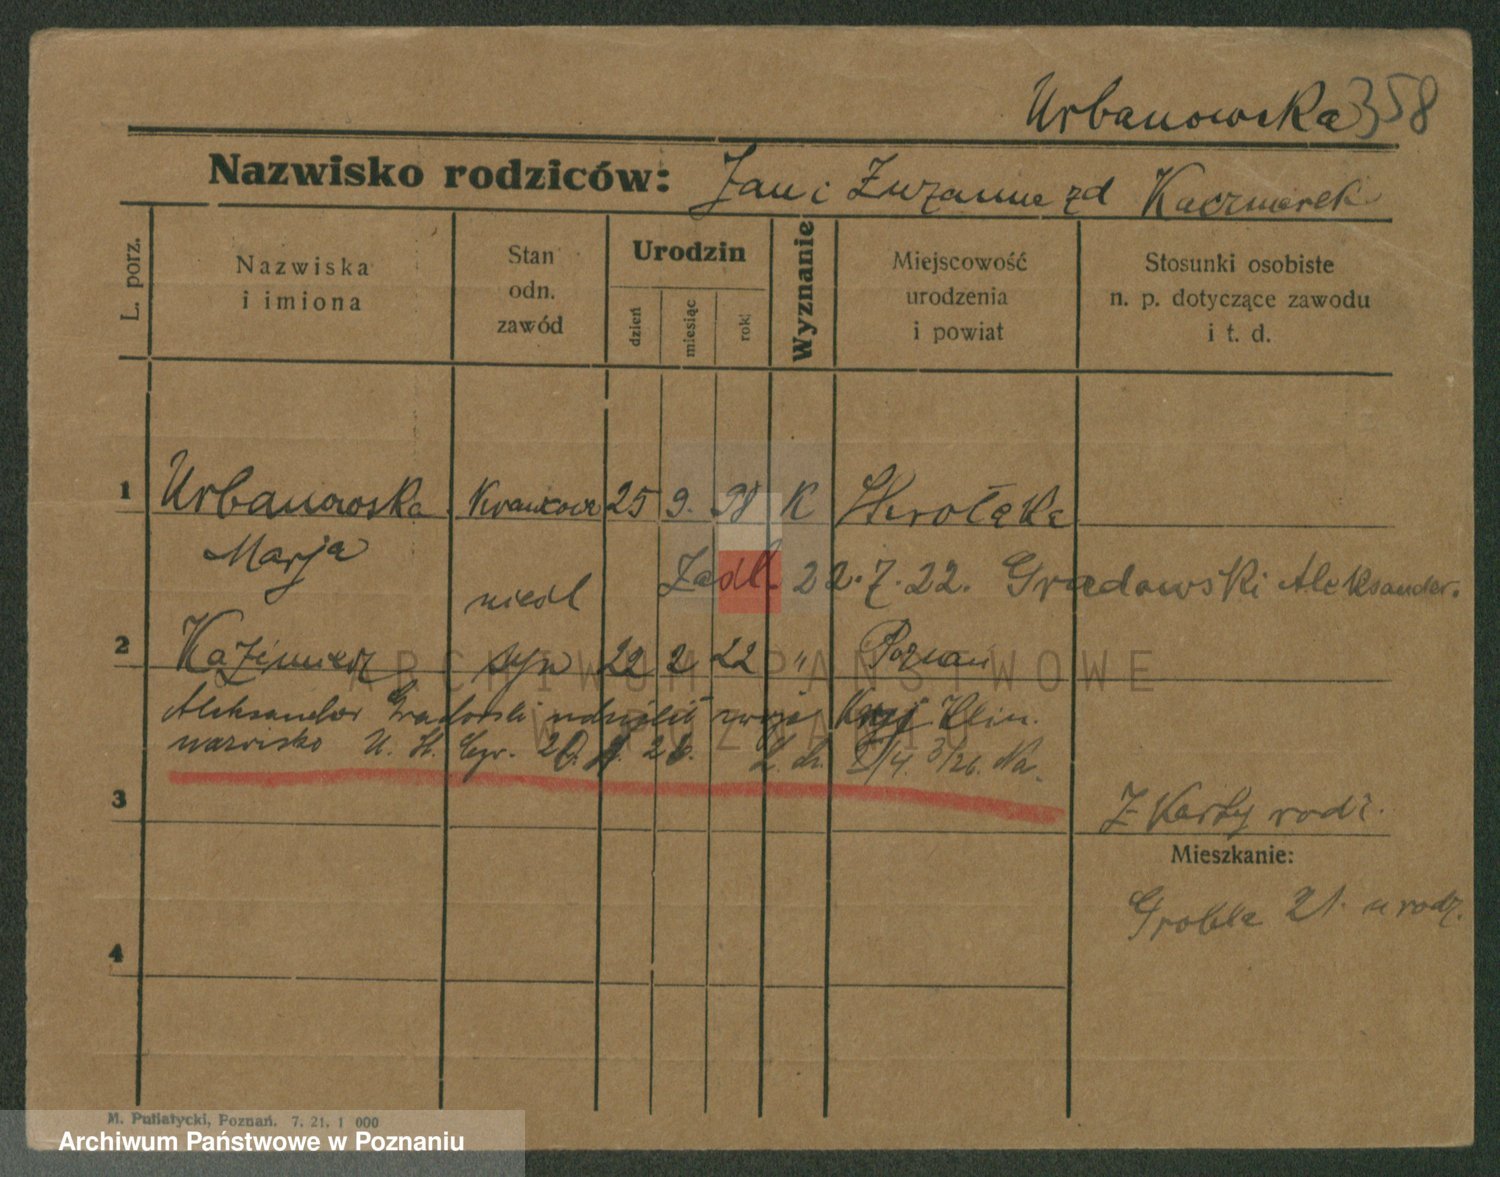 Urbanowska 358
Nazwisko rodziców: Jan i Zuzanna zd Kaczmarek
L. porz.
Nazwiska
i imiona
Stan
odn.
zawód
Urodzin
dzień
miesiąc
rok
Wyznanie
Miejscowość
urodzenia
i powiat
Stosunki osobiste
n. p. dotyczące zawodu
i t. d.
1 Urbanowska 25 9. 98 K
Marja
Zadł. 22.7.22. Gradowski Aleksander.
nieśl
2 Kazimierz syn 22 2 22 " Poznań
Aleksander Gradowski udzielił
nazwisko U. St. Cyw.
3
Z Karty rodz.
Mieszkanie:
Grobla 21. u rodz.
4
M. Putiatycki, Poznań. 7. 21. 1 000
ARCHIWUM PAŃSTWOWE
W POZNANIU
Archiwum Państwowe w Poznaniu